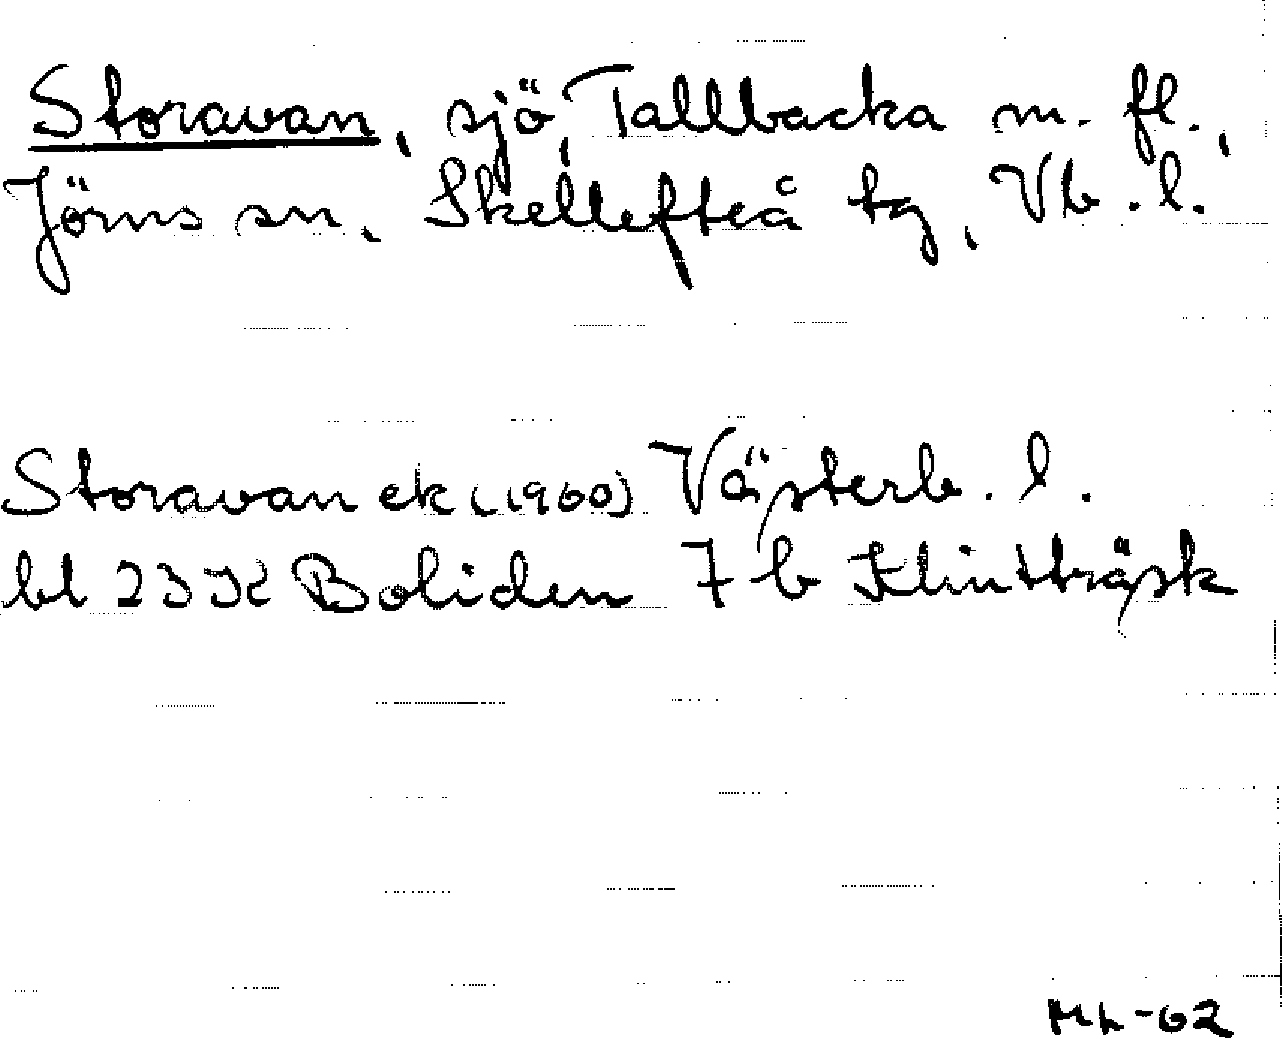 Storavan, sjö, Tallbacka m. fl.,
Jörns sn, Skellefteå tg, Vb. l.
Storavan ek (1960) Västerb. l.
bl 23 K Boliden 7 b Klintträsk
ML-62